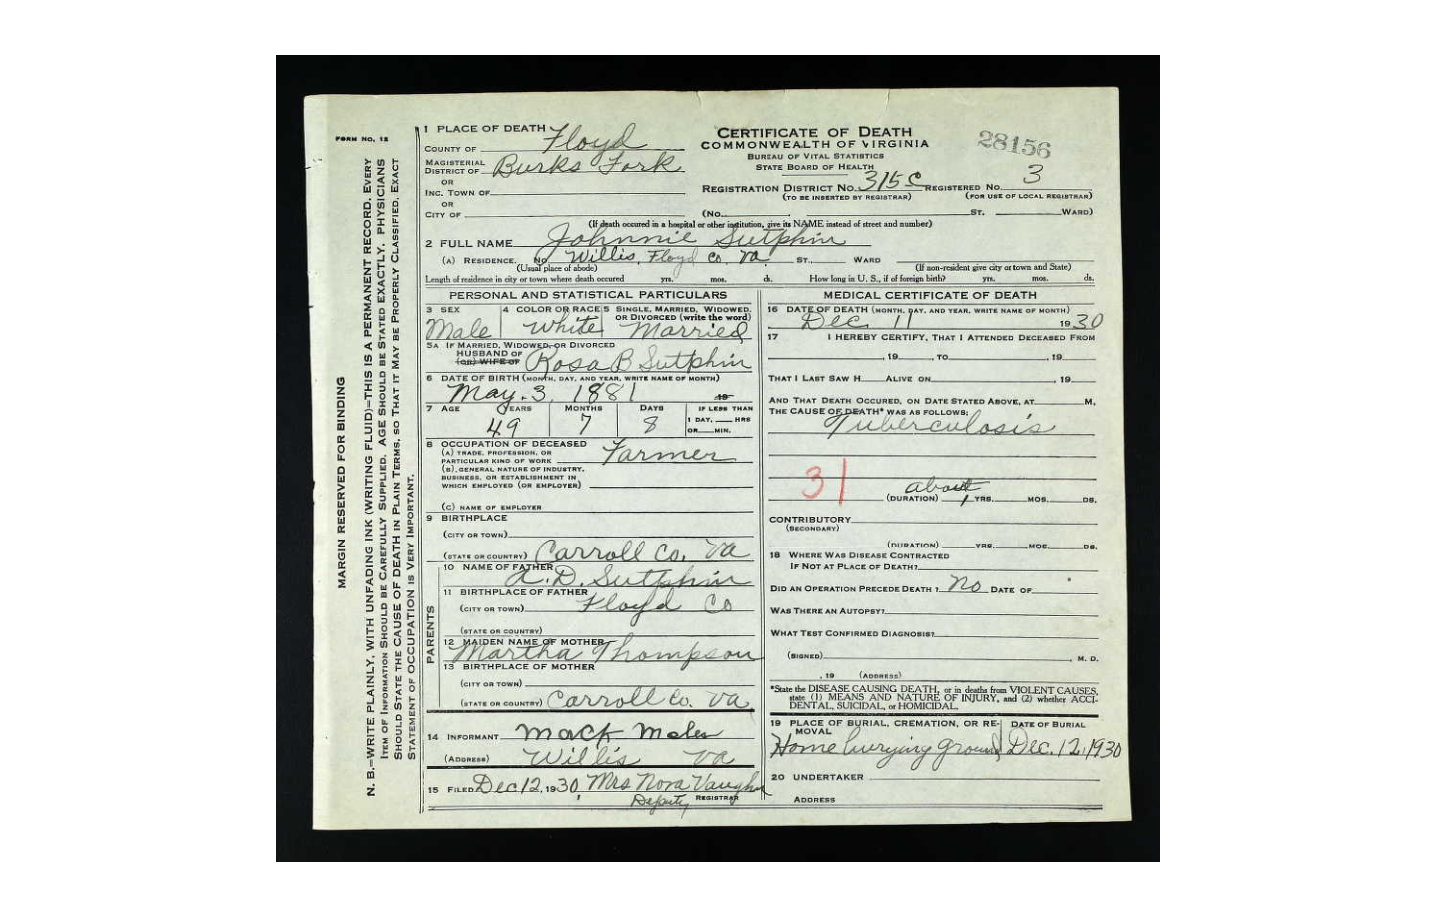 FORM NO. 12
MARGIN RESERVED FOR BINDING
N. B.—WRITE PLAINLY, WITH UNFADING INK (WRITING FLUID)—THIS IS A PERMANENT RECORD. EVERY
ITEM OF INFORMATION SHOULD BE CAREFULLY SUPPLIED. AGE SHOULD BE STATED EXACTLY. PHYSICIANS
SHOULD STATE THE CAUSE OF DEATH IN PLAIN TERMS, SO THAT IT MAY BE PROPERLY CLASSIFIED. EXACT
STATEMENT OF OCCUPATION IS VERY IMPORTANT.
1 PLACE OF DEATH
COUNTY OF Floyd
MAGISTERIAL
DISTRICT OF Burks Fork
OR
INC. TOWN OF
OR
CITY OF
CERTIFICATE OF DEATH
COMMONWEALTH OF VIRGINIA
BUREAU OF VITAL STATISTICS
STATE BOARD OF HEALTH
28156
REGISTRATION DISTRICT NO. 315C REGISTERED NO. 3
(TO BE INSERTED BY REGISTRAR) (FOR USE OF LOCAL REGISTRAR)
(NO. ST. WARD)
(If death occured in a hospital or other institution, give its NAME instead of street and number)
2 FULL NAME Johnnie Sutphin
(A) RESIDENCE. NO. Willis, Floyd Co. Va ST., WARD
(Usual place of abode) (If non-resident give city or town and State)
Length of residence in city or town where death occured yrs. mos. ds. How long in U. S., if of foreign birth? yrs. mos. ds.
PERSONAL AND STATISTICAL PARTICULARS
3 SEX
Male
4 COLOR OR RACE
White
5 SINGLE, MARRIED, WIDOWED,
OR DIVORCED (write the word)
Married
5A IF MARRIED, WIDOWED, OR DIVORCED
HUSBAND OF
(OR) WIFE OF Rosa B Sutphin
6 DATE OF BIRTH (MONTH, DAY, AND YEAR, WRITE NAME OF MONTH)
May. 3, 1881 19
7 AGE YEARS MONTHS DAYS IF LESS THAN
1 DAY, HRS
OR MIN.
49 7 8
8 OCCUPATION OF DECEASED
(A) TRADE, PROFESSION, OR
PARTICULAR KIND OF WORK Farmer
(B) GENERAL NATURE OF INDUSTRY,
BUSINESS, OR ESTABLISHMENT IN
WHICH EMPLOYED (OR EMPLOYER)
(C) NAME OF EMPLOYER
9 BIRTHPLACE
(CITY OR TOWN)
(STATE OR COUNTRY) Carroll Co. Va
PARENTS
10 NAME OF FATHER
A. D. Sutphin
11 BIRTHPLACE OF FATHER
(CITY OR TOWN) Floyd Co
(STATE OR COUNTRY)
12 MAIDEN NAME OF MOTHER
Martha Thompson
13 BIRTHPLACE OF MOTHER
(CITY OR TOWN)
(STATE OR COUNTRY) Carroll Co. Va
14 INFORMANT Mack
(ADDRESS) Willis Va
15 FILED Dec 12, 1930, Mrs Nora Vaughn
Deputy REGISTRAR
MEDICAL CERTIFICATE OF DEATH
16 DATE OF DEATH (MONTH, DAY, AND YEAR, WRITE NAME OF MONTH)
Dec. 11 1930
17 I HEREBY CERTIFY, THAT I ATTENDED DECEASED FROM
, 19 , TO , 19
THAT I LAST SAW H ALIVE ON , 19
AND THAT DEATH OCCURED, ON DATE STATED ABOVE, AT M.
THE CAUSE OF DEATH* WAS AS FOLLOWS:
Tuberculosis
31
about
(DURATION) 1 YRS. MOS. DS.
CONTRIBUTORY
(SECONDARY)
(DURATION) YRS. MOS. DS.
18 WHERE WAS DISEASE CONTRACTED
IF NOT AT PLACE OF DEATH?
DID AN OPERATION PRECEDE DEATH? No DATE OF
WAS THERE AN AUTOPSY?
WHAT TEST CONFIRMED DIAGNOSIS?
(SIGNED) , M. D.
, 19 (ADDRESS)
*State the DISEASE CAUSING DEATH, or in deaths from VIOLENT CAUSES,
state (1) MEANS AND NATURE OF INJURY, and (2) whether ACCI-
DENTAL, SUICIDAL, or HOMICIDAL.
19 PLACE OF BURIAL, CREMATION, OR RE-
MOVAL
Home burying ground
DATE OF BURIAL
Dec. 12, 1930
20 UNDERTAKER
ADDRESS